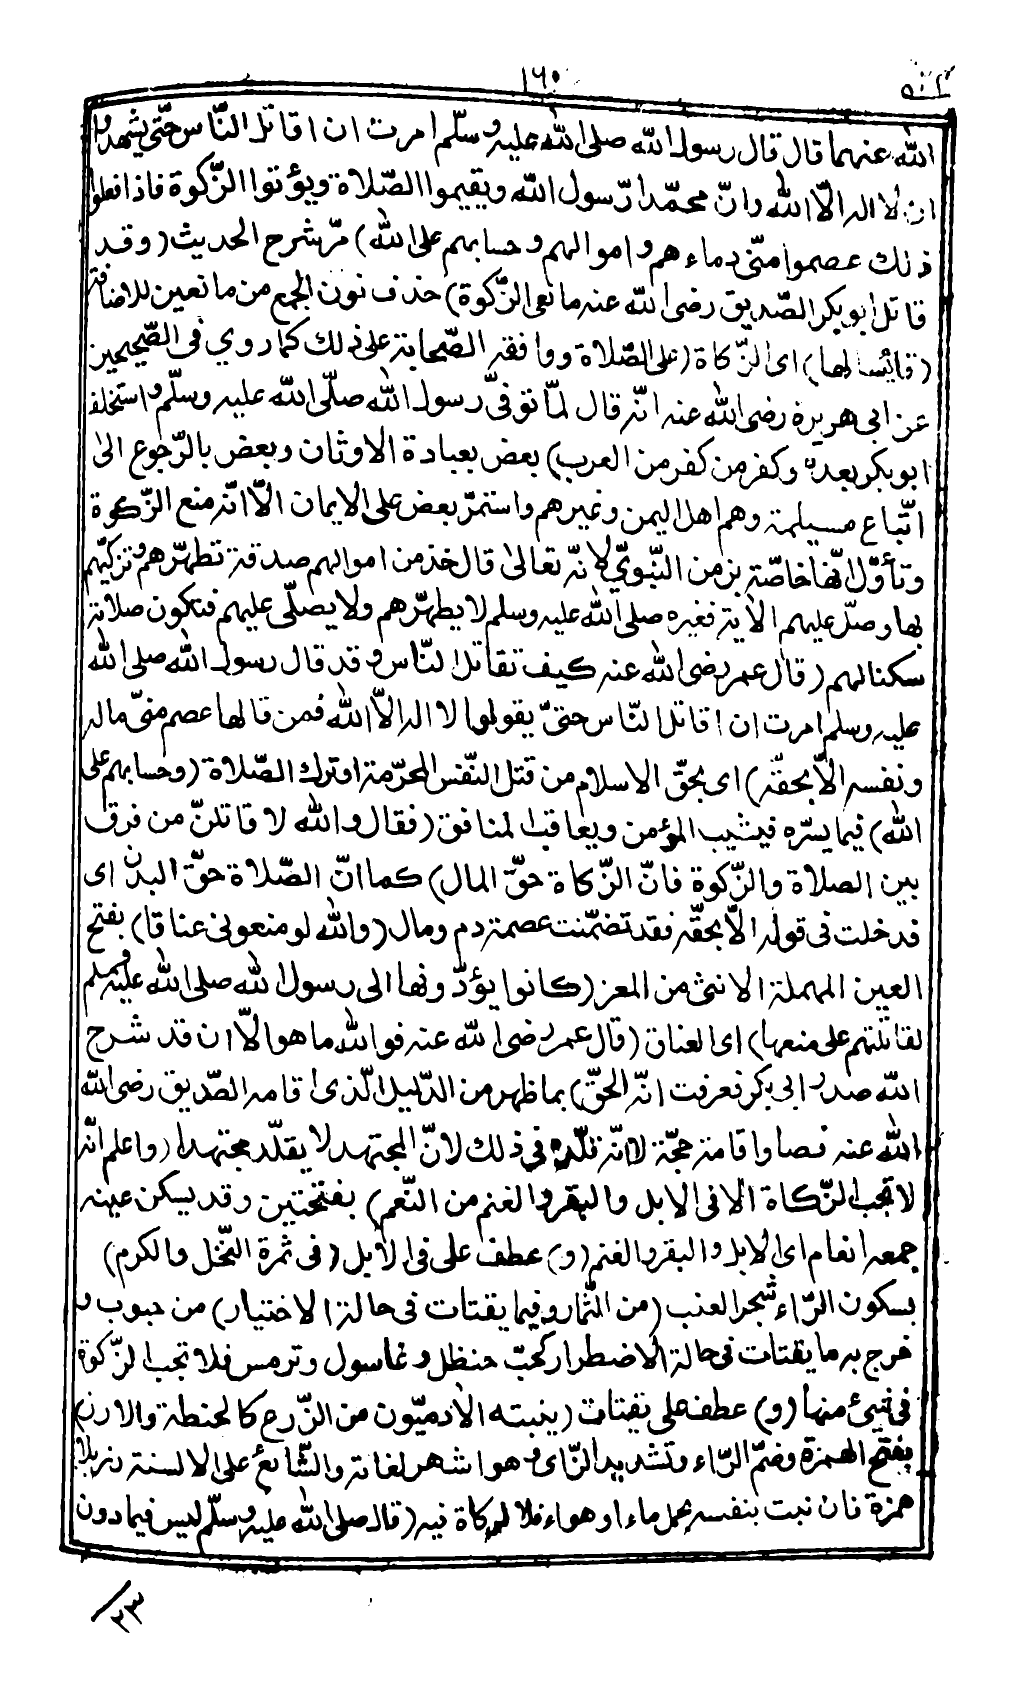 ١٦٠
الله عنهما قال قال رسول الله صلى الله عليه وسلّم امرت ان اقاتل النّاس حتّى يشهدوا
ان لا اله الّا الله وانّ محمّدا رّسول الله ويقيموا الصّلاة ويؤتوا الزّكوة فاذا فعلوا
ذلك عصموا منّى دماءهم واموالهم وحسابهم على الله) مرّ شرح الحديث (وقد
قاتل ابوبكر الصّديق رضى الله عنه مانعى الزّكوة) حذف نون الجمع من مانعين للاضافة
(قائسا لها) اى الزّكاة (على الصّلاة ووافقه الصّحابة على ذلك كما روي فى الصّحيحين
عن ابى هريرة رضى الله عنه انّه قال لمّا توفّى رسول الله صلّى الله عليه وسلّم واستخلف
ابوبكر بعده وكفر من كفر من العرب) بعض بعبادة الاوثان وبعض بالرّجوع الى
اتّباع مسيلمة وهم اهل اليمن وغيرهم واستمرّ بعض على الايمان الّا انّه منع الزّكوة
وتأوّل انّها خاصّة بزمن النّبويّ لانّه تعالى قال خذ من اموالهم صدقة تطهّرهم وتزكّيهم
بها وصلّ عليهم الآية فغيره صلى الله عليه وسلم لا يطهّرهم ولا يصلّى عليهم فتكون صلاته
سكنا لهم (قال عمر رضى الله عنه كيف تقاتل النّاس وقد قال رسول الله صلى الله
عليه وسلم امرت ان اقاتل النّاس حتىّ يقولوا لا اله الّا الله فمن قالها عصم منّى ماله
ونفسه الّا بحقّه) اى بحقّ الاسلام من قتل النّفس المحرّمة او ترك الصّلاة (وحسابهم على
الله) فيما يسرّه فيثيب المؤمن ويعاقب المنافق (فقال والله لا قاتلنّ من فرق
بين الصلاة والزّكوة فانّ الزّكاة حقّ المال) كما انّ الصّلاة حقّ البدن اى
قد خلت فى قوله الّا بحقّه فقد تضمّنت عصمة دم ومال (والله لو منعونى عناقا) بفتح
العين المهملة الانثى من المعز (كانوا يؤدّونها الى رسول الله صلى الله عليه وسلم
لقاتلتهم على منعها) اى العناق (قال عمر رضى الله عنه فوالله ما هو الّا ان قد شرح
الله صدر ابى بكر فعرفت انّه الحقّ) بما ظهر من الدّليل الّذى اقامه الصّديق رضى الله
الله عنه نصا واقامة حجّة لا انّه قلّده فى ذلك لانّ المجتهد لا يقلّد مجتهدا (واعلم انّه
لا تجب الزّكاة الا فى الابل والبقر والغنم من النّعم) بفتحتين وقد يسكن عينه
جمعه انعام اى الابل والبقر والغنم (و) عطف على فى الابل (فى ثمرة النّخل والكرم)
بسكون الرّاء شجر العنب (من الثّمار وفيما يقتات فى حالة الاختيار) من حبوب و
خرج به ما يقتات فى حالة الاضطرار كحبّ حنظل وغاسول وترمس فلا تجب الزّكوة
فى شيئ منها (و) عطف على يقتات (ينبته الآدميّون من الزّرع كالحنطة والارز)
بفتح الهمزة وضمّ الرّاء وتشديد الزّاى وهو اشهر لغاته والشّائع على الالسنة رز بلا
همزة فان نبت بنفسه بحمل ماء او هواء فلا زكاة فيه (قال صلى الله عليه وسلّم ليس فيما دون
٢٣